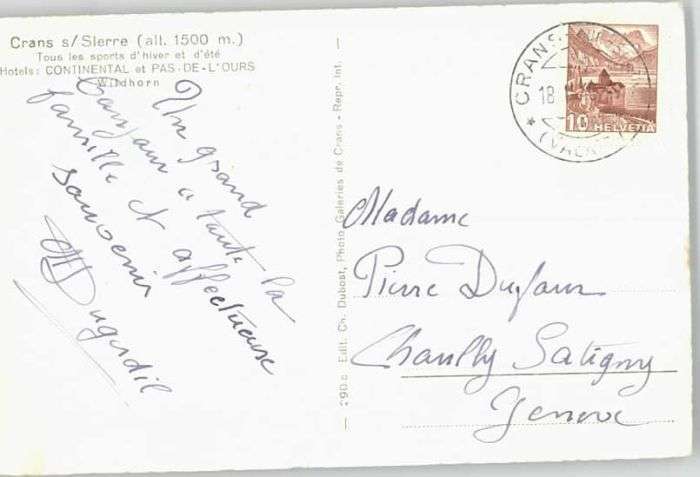 Crans s/Sierre (alt. 1500 m.)
Tous les sports d'hiver et d'été
Hotels: CONTINENTAL et PAS-DE-L'OURS
Wildhorn
Un grand
bonjour a toute la
famille et affectueuse
souvenir
Dugerdil
Edit. Ch. Dubost, Photo Galeries de Crans - Repr. Int.
CRANS
18
10 HELVETIA
Madame
Pierre Dufour
Chouilly Satigny
Geneve